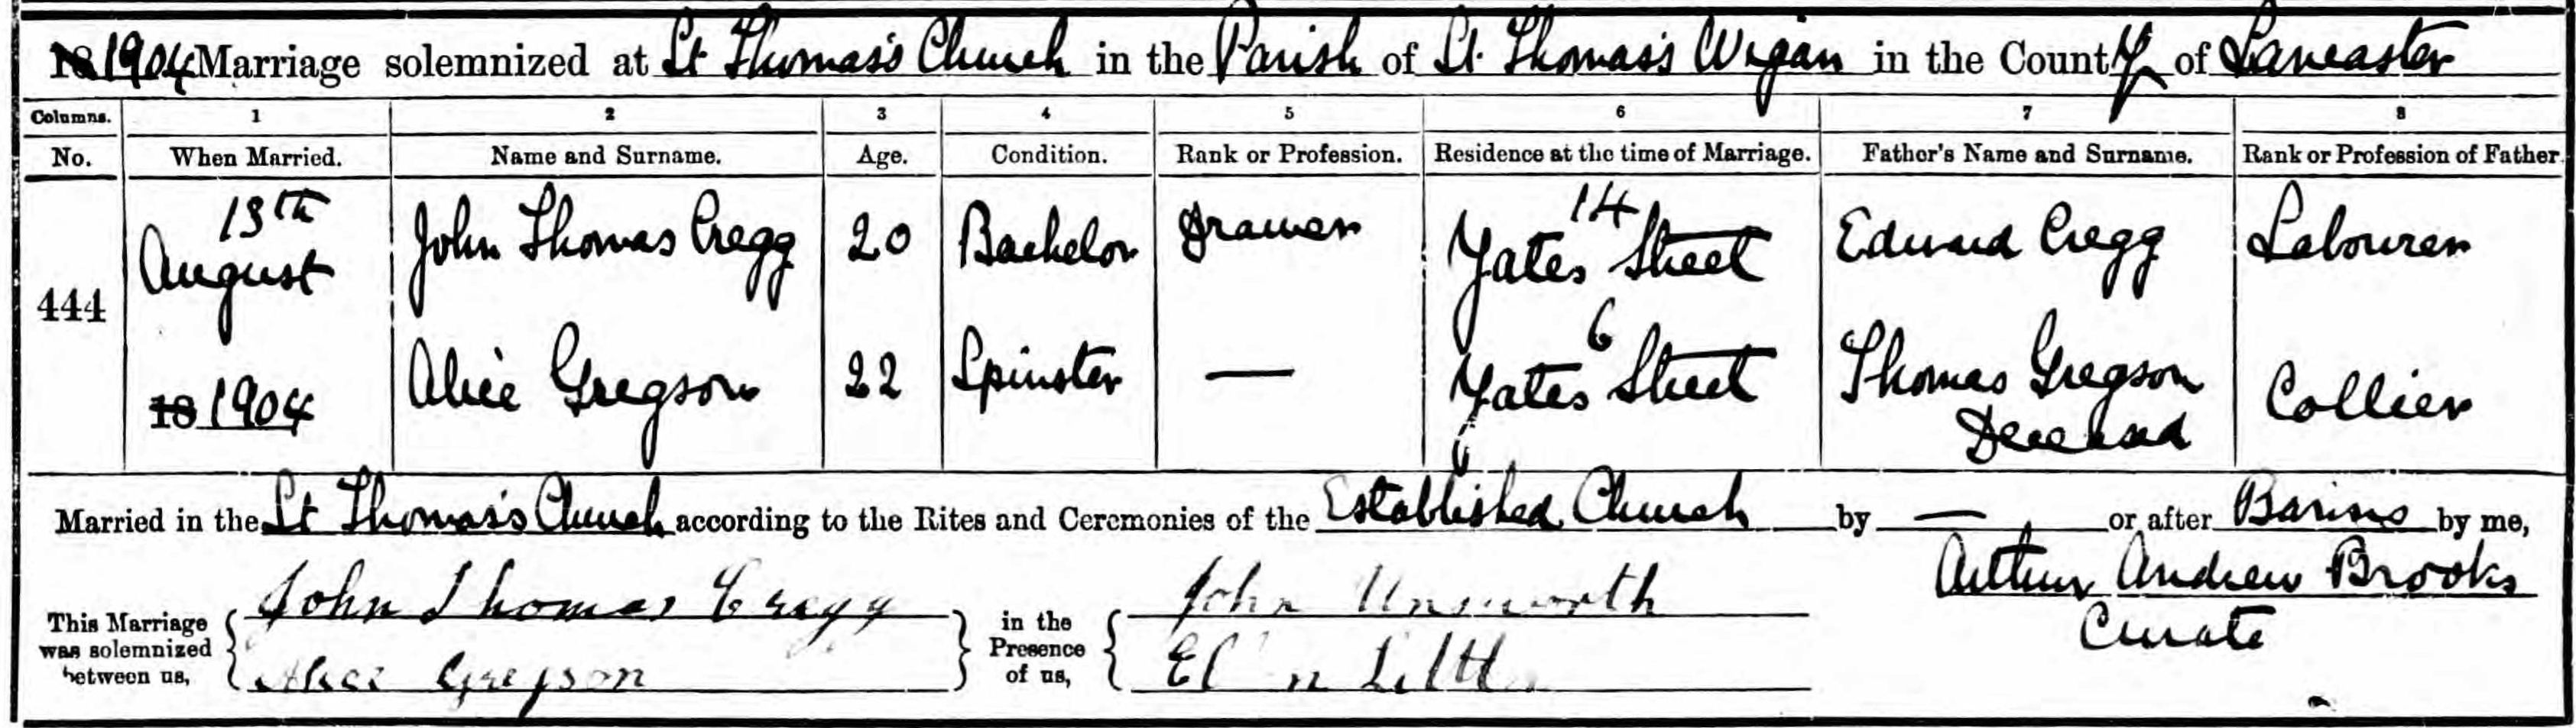 1904 Marriage solemnized at St Thomas's Church in the Parish of St. Thomas's Wigan in the County of Lancaster
Columns. 1 2 3 4 5 6 7 8
No. When Married. Name and Surname. Age. Condition. Rank or Profession. Residence at the time of Marriage. Father's Name and Surname. Rank or Profession of Father
444 13th August 1904 John Thomas Cregg 20 Bachelor Drawer 14 Yates Street Edward Cregg Labourer
Alice Gregson 22 Spinster — 6 Yates Street Thomas Gregson Deceased Collier
Married in the St Thomas's Church according to the Rites and Ceremonies of the Established Church by — or after Banns by me,
This Marriage was solemnized between us, John Thomas Cregg Alice Gregson in the Presence of us, John Unsworth
Arthur Andrew Brooks
Curate